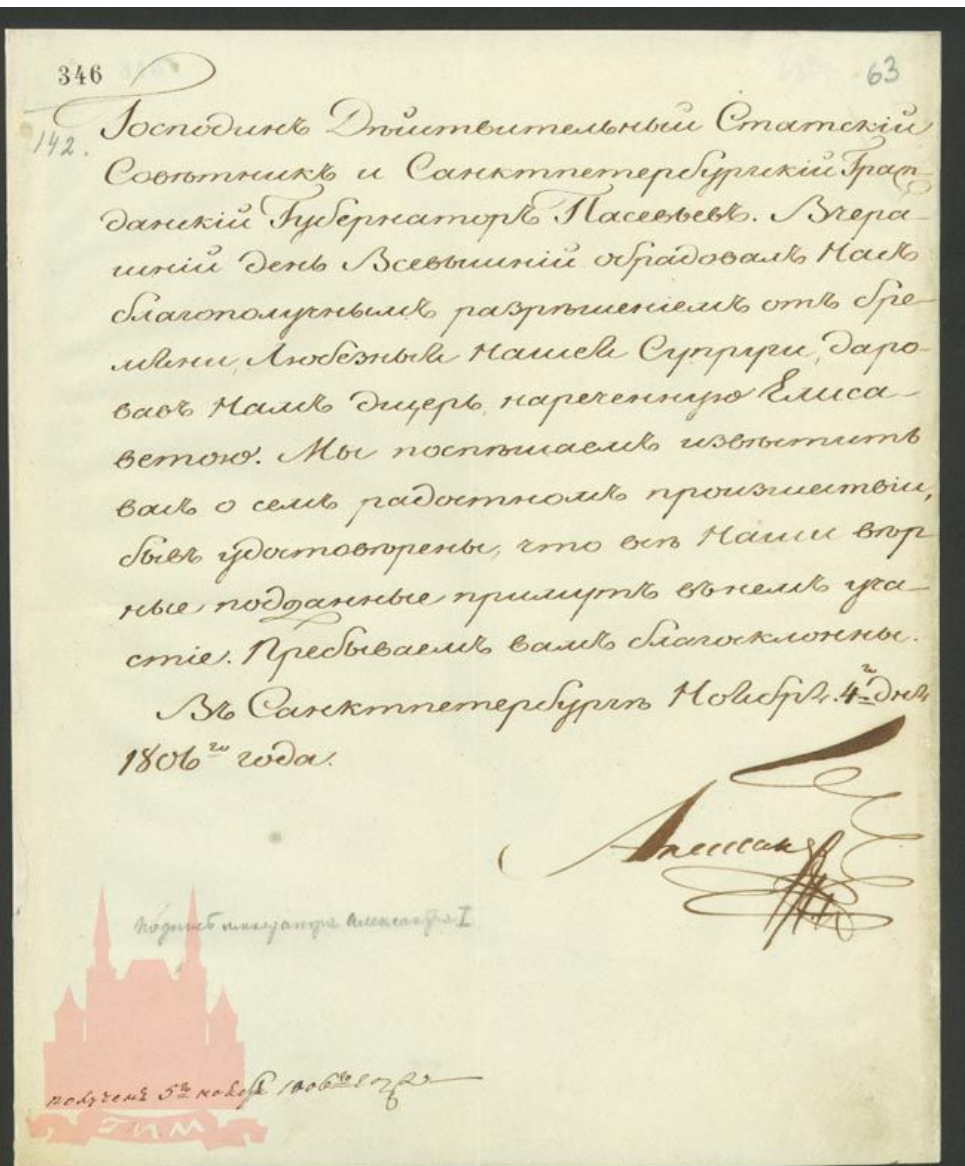 346
63
142.
Господинъ Дѣйствительный Статскій
Совѣтникъ и Санктпетербургскій Граж
данскій Губернаторъ Пасевьевъ. Вчера-
шній день Всевышній обрадовалъ Насъ
благополучнымъ разрѣшеніемъ отъ бре-
мѣни, Любезныя Нашея Супруги, даро-
вавъ Намъ Дщерь, нареченную Елиса-
ветою. Мы поспѣшаемъ извѣстить
васъ о семъ радостномъ произшествіи,
бывъ удостовѣрены, что всѣ Наши вѣр
ные подданные примутъ въ немъ уча-
стіе. Пребываемъ вамъ благосклонны.
Въ Санктпетербургѣ Ноября. 4го дня
1806го года.
Александръ
Подпись императора Александра I
полученъ 5го ноября 1806го года
ГИМ